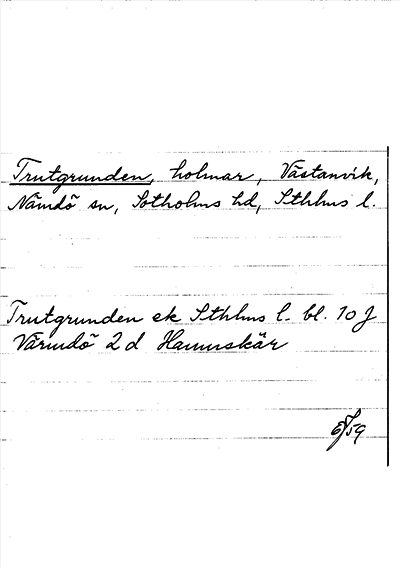 Trutgrunden, holmar, Västanvik,
Nämdö sn, Sotholms hd, Sthlms l.
Trutgrunden ek Sthlms l. bl. 10 J
Värmdö 2 d Hamnskär